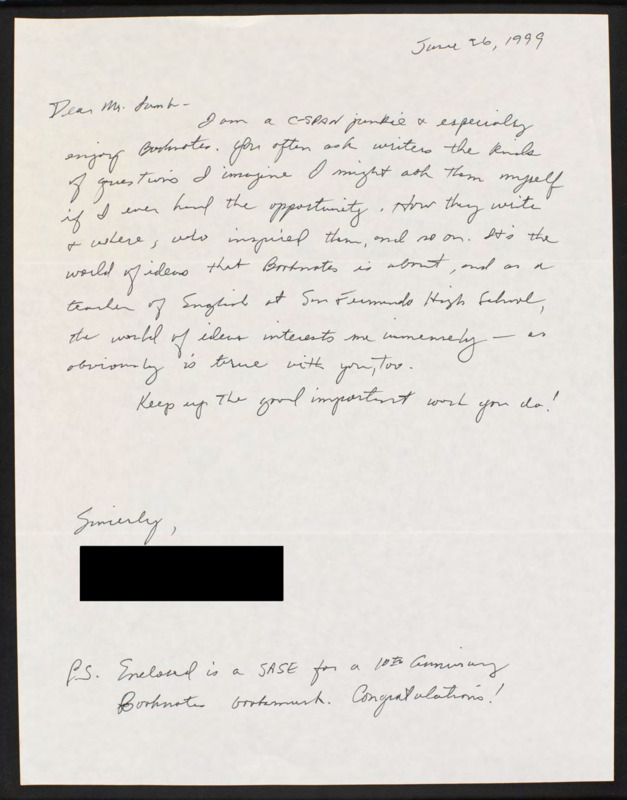 June 26, 1999
Dear Mr. Lamb -
I am a C-SPAN junkie & especially
enjoy Booknotes. You often ask writers the kinds
of questions I imagine I might ask them myself
if I ever had the opportunity. How they write
& where, who inspired them, and so on. It's the
world of ideas that Booknotes is about, and as a
teacher of English at San Fernando High School,
the world of ideas interests me immensely — as
obviously is true with you, too.
Keep up the good important work you do!
Sincerely,
P.S. Enclosed is a SASE for a 10th Anniversary
Booknotes bookmark. Congratulations!